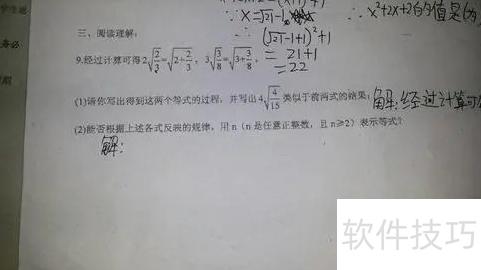 学生题
∵ x=√21-1
∴ x²+2x+2的值是
三、阅读理解:
∴ (√21-1+1)²+1
= 21+1
=22
9.经过计算可得 2√(2/3)=√(2+2/3), 3√(3/8)=√(3+3/8),
务必
(1)请你写出得到这两个等式的过程,并写出 4√(4/15) 类似于前两式的结果;
解:经过计算可
(2)能否根据上述各式反映的规律,用 n(n 是任意正整数,且 n≥2)表示等式?
解:
软件技巧